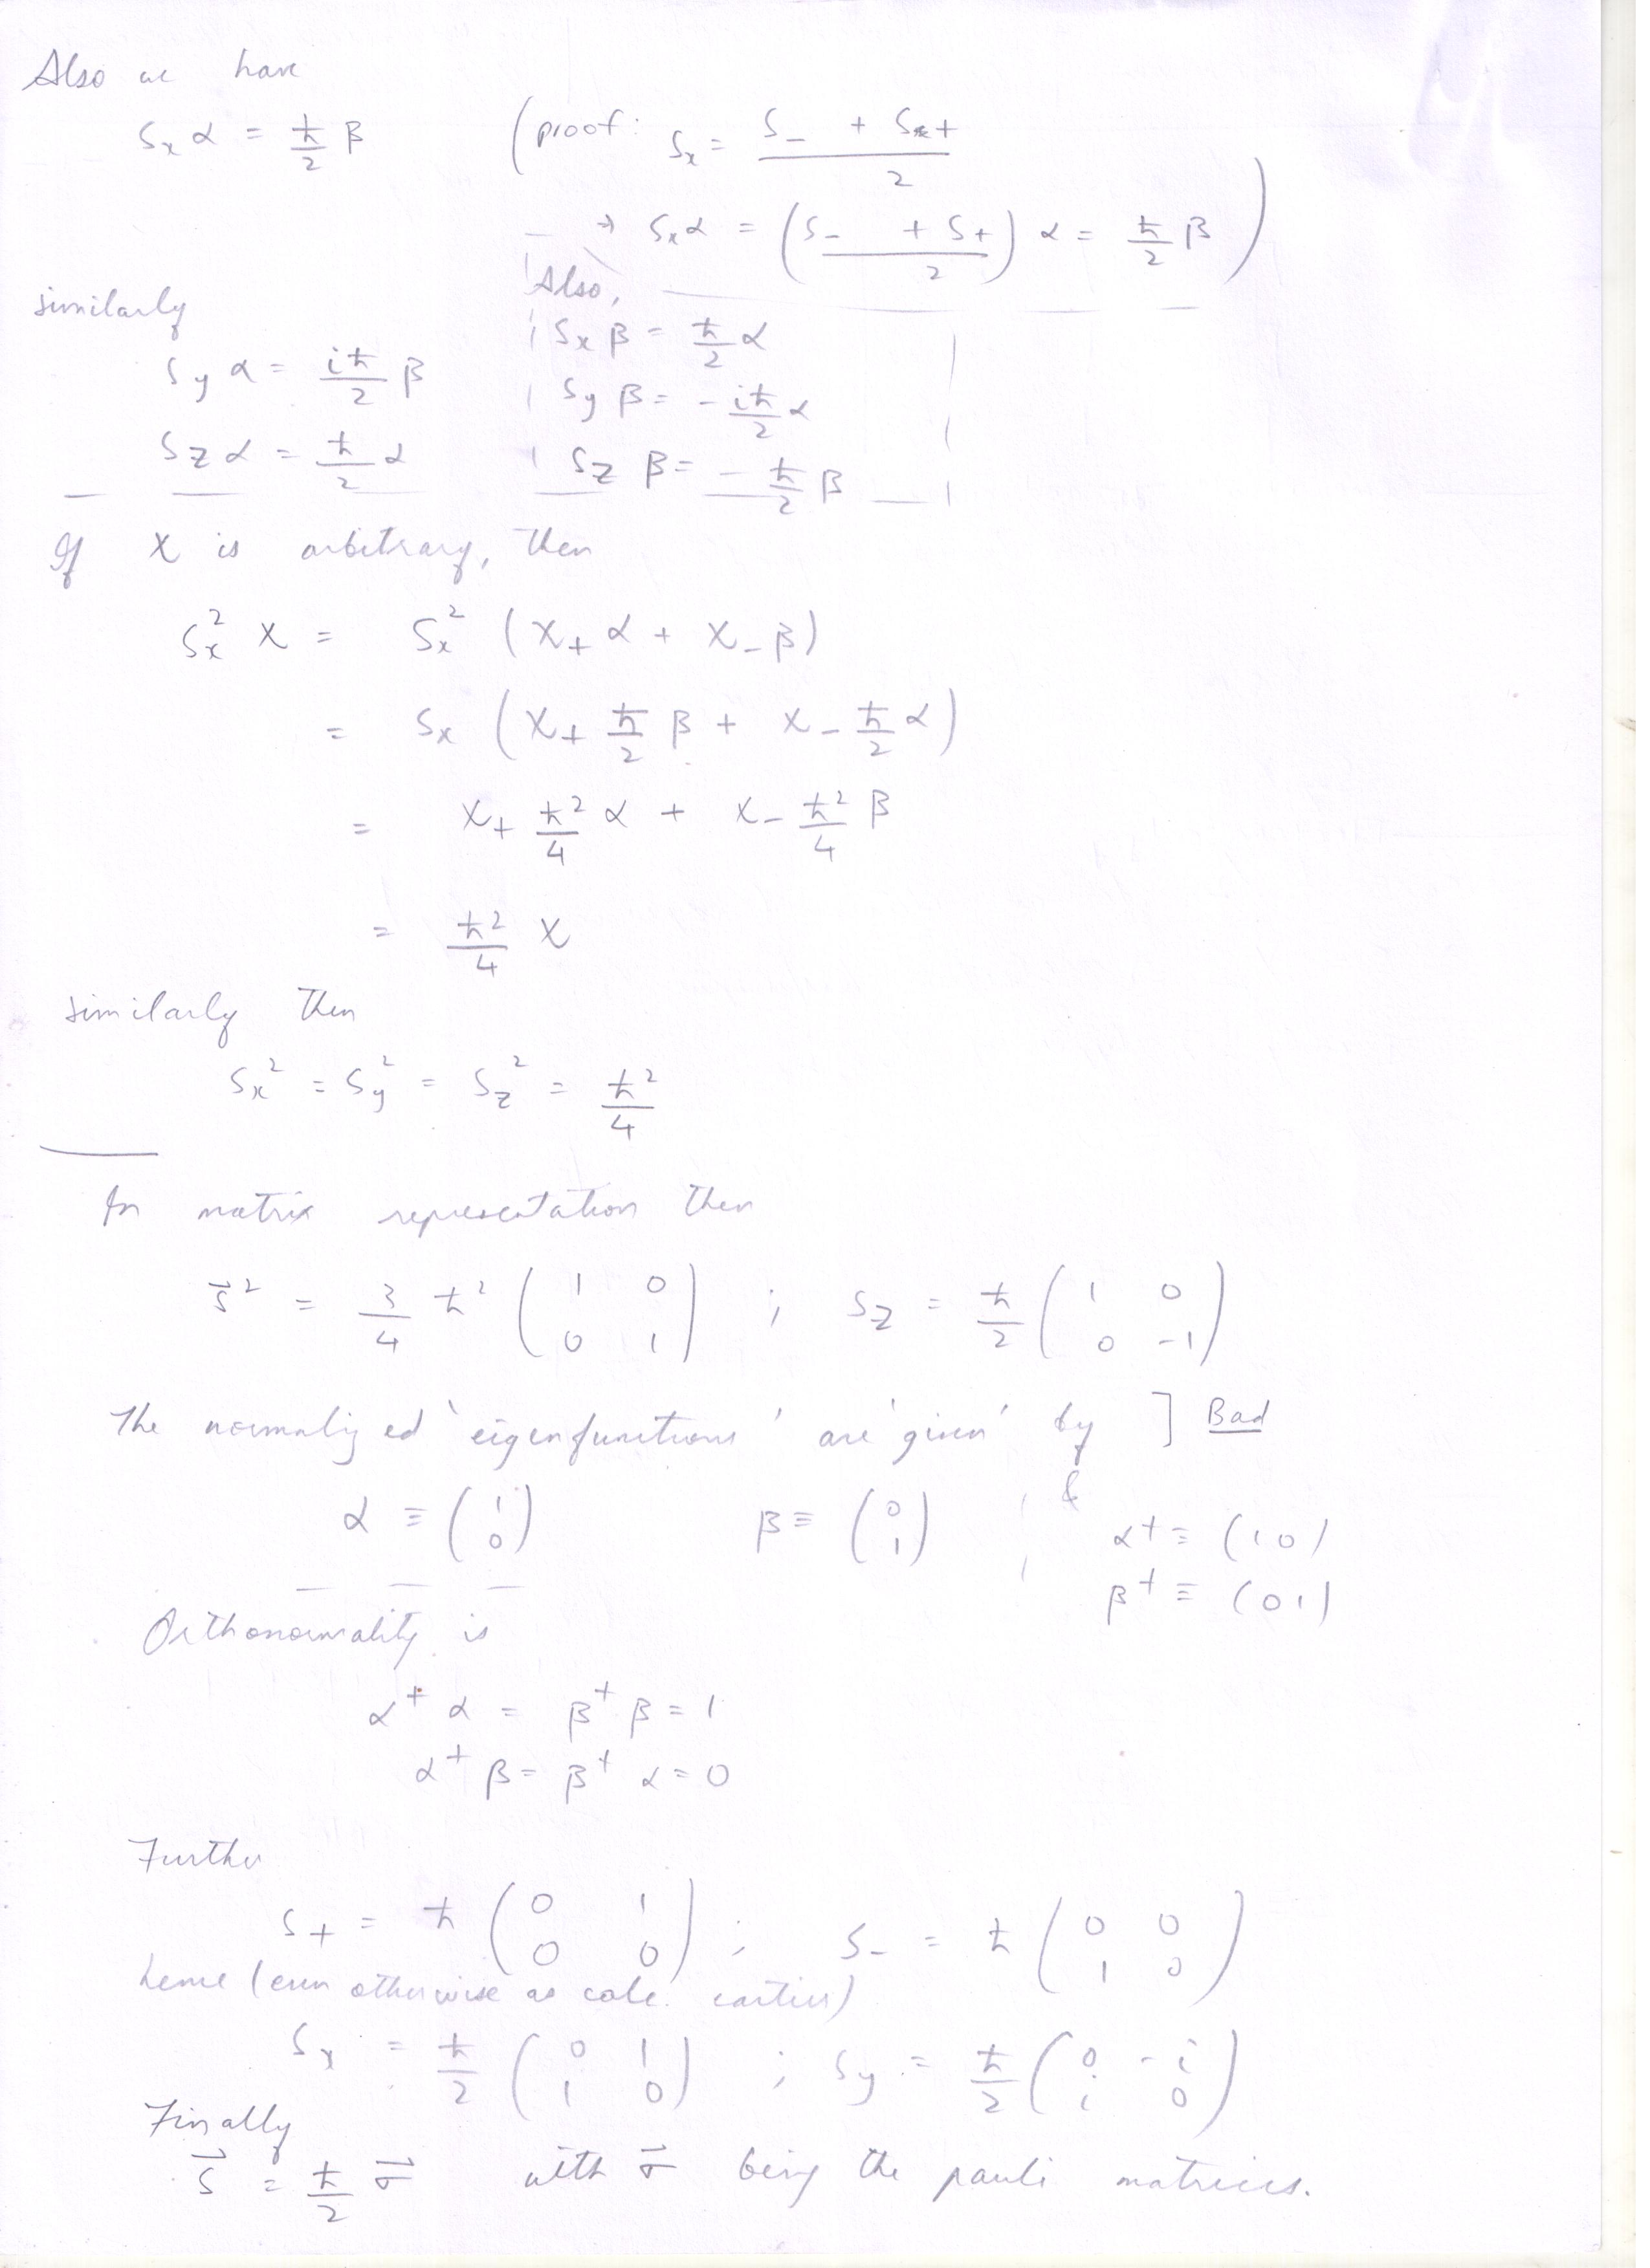 Also we have
Sx α = ħ/2 β (proof: Sx = (S₋ + S₊)/2
⇒ Sx α = ((S₋ + S₊)/2) α = ħ/2 β)
Also,
similarly
Sx β = ħ/2 α
Sy α = iħ/2 β
Sy β = - iħ/2 α
Sz α = ħ/2 α
Sz β = - ħ/2 β
If χ is arbitrary, then
Sx² χ = Sx² (χ₊ α + χ₋ β)
= Sx (χ₊ ħ/2 β + χ₋ ħ/2 α)
= χ₊ ħ²/4 α + χ₋ ħ²/4 β
= ħ²/4 χ
similarly then
Sx² = Sy² = Sz² = ħ²/4
In matrix representation then
S⃗² = 3/4 ħ² (1 0; 0 1) ; Sz = ħ/2 (1 0; 0 -1)
The normalized 'eigenfunctions' are 'given' by ] Bad
α ≡ (1; 0) β ≡ (0; 1) ; & α† ≡ (1 0)
β† ≡ (0 1)
Orthonormality is
α† α = β† β = 1
α† β = β† α = 0
Further
S₊ = ħ (0 1; 0 0) ; S₋ = ħ (0 0; 1 0)
hence (even otherwise as calc. earlier)
Sx = ħ/2 (0 1; 1 0) ; Sy = ħ/2 (0 -i; i 0)
Finally
S⃗ = ħ/2 σ⃗ with σ⃗ being the pauli matrices.